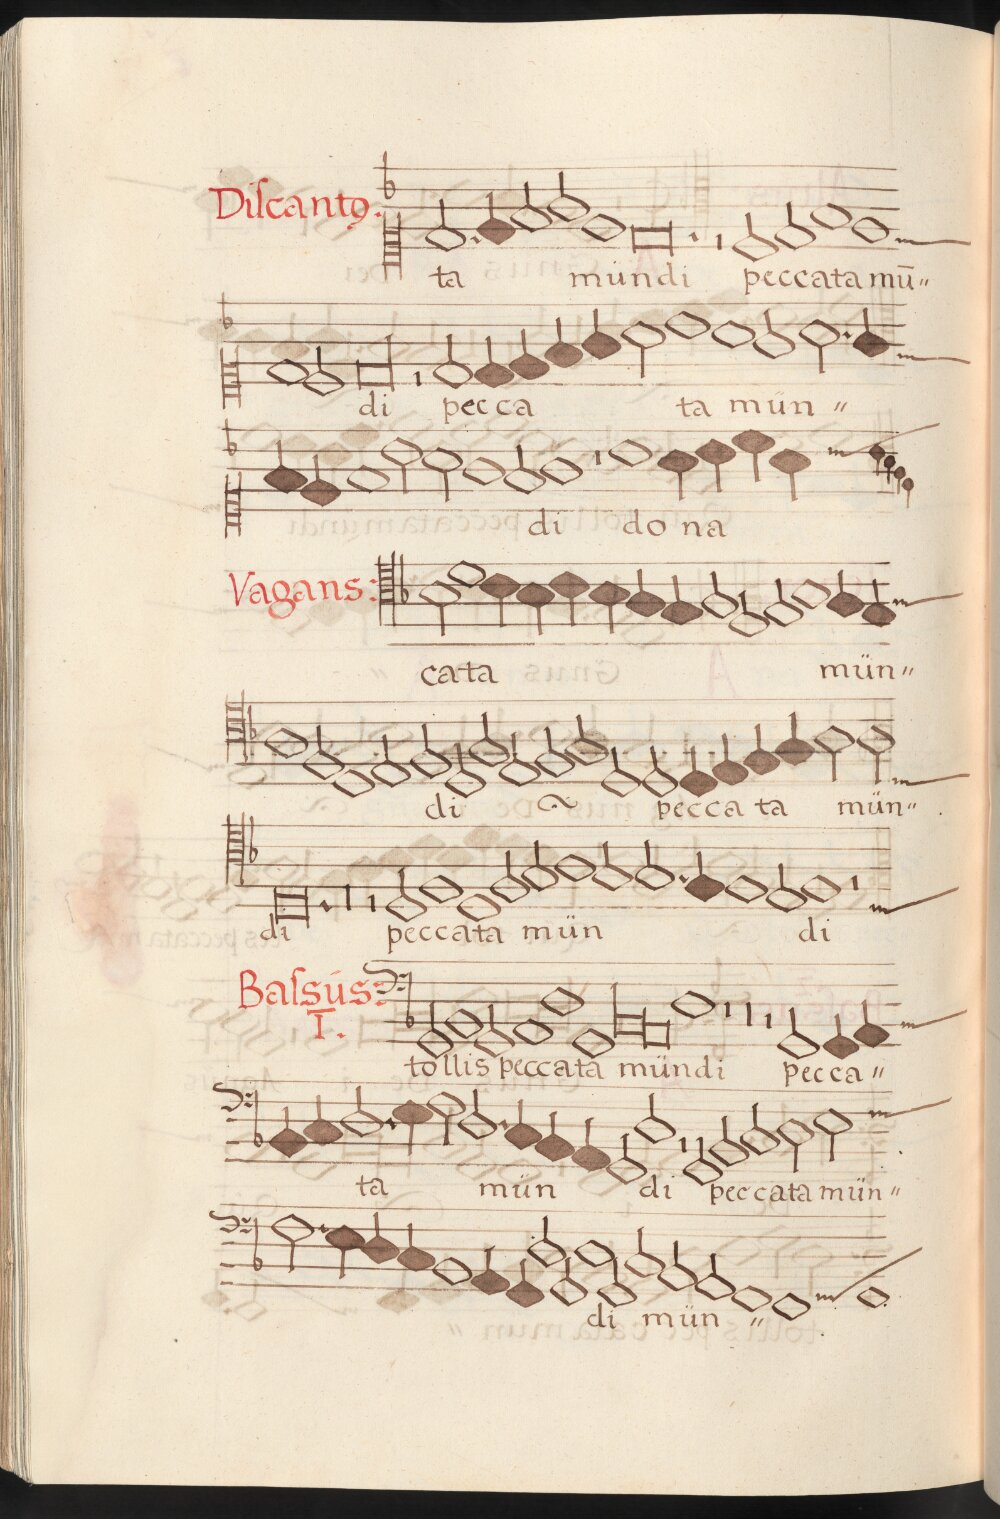 Discantꝰ:
ta mündi peccata mū"
di pecca ta mün "
di dona
Vagans:
cata mün"
di pecca ta mün"
di peccata mün di
Bassüs:
I.
tollis peccata mündi pecca"
ta mün di peccata mün"
di mün "